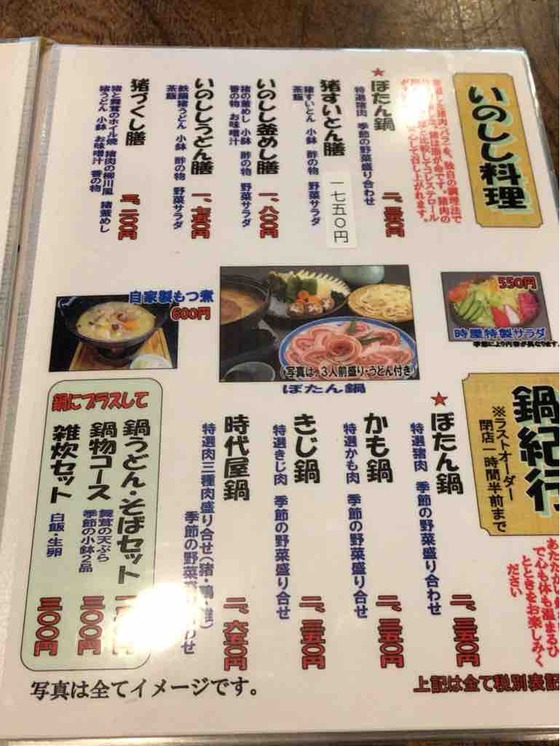 いのしし料理
★ぼたん鍋
特選猪肉 季節の野菜盛り合わせ
猪すいとん膳
猪すいとん 小鉢 酢の物 野菜サラダ
茶飯
一七五〇円
いのしし釜めし膳
猪の釜めし 小鉢 酢の物 野菜サラダ
香の物 お味噌汁
一、八〇〇円
いのししうどん膳
鉄鍋猪うどん 小鉢 酢の物 野菜サラダ
茶飯
猪づくし膳
猪と舞茸のホイル焼 猪肉の柳川風 猪釜めし
猪うどん 小鉢 お味噌汁 香の物
自家製もつ煮
600円
写真は、3人前盛り・うどん付き
ぼたん鍋
550円
時屋特製サラダ
季節により内容が異なります
鍋紀行
※ラストオーダー
閉店一時間半前まで
で心も体も温まるひ
とときをお楽しみく
ださい
★ぼたん鍋
特選猪肉 季節の野菜盛り合わせ
二、三五〇円
かも鍋
特選かも肉 季節の野菜盛り合わせ
二、三五〇円
きじ鍋
特選きじ肉 季節の野菜盛り合わせ
二、三五〇円
時代屋鍋
特選肉三種肉盛り合せ(猪・鴨・雉)
季節の野菜
二、六五〇円
鍋にプラスして
鍋うどん・そばセット
鍋物コース
舞茸の天ぷら
季節の小鉢2品
雑炊セット
白飯・生卵
三〇〇円
写真は全てイメージです。
上記は全て税別表記